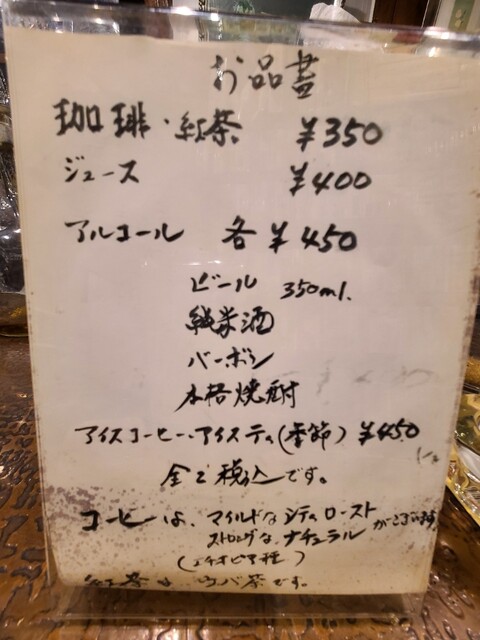 お品書
珈琲・紅茶 ¥350
ジュース ¥400
アルコール 各 ¥450
ビール 350ml.
純米酒
バーボン
本格焼酎
アイスコーヒー、アイスティ(季節) ¥450
全て税込です。
コーヒーは、マイルドなシティロースト
ストロングな、ナチュラル がございます
(エチオピア種)
紅茶は、ウバ茶です。